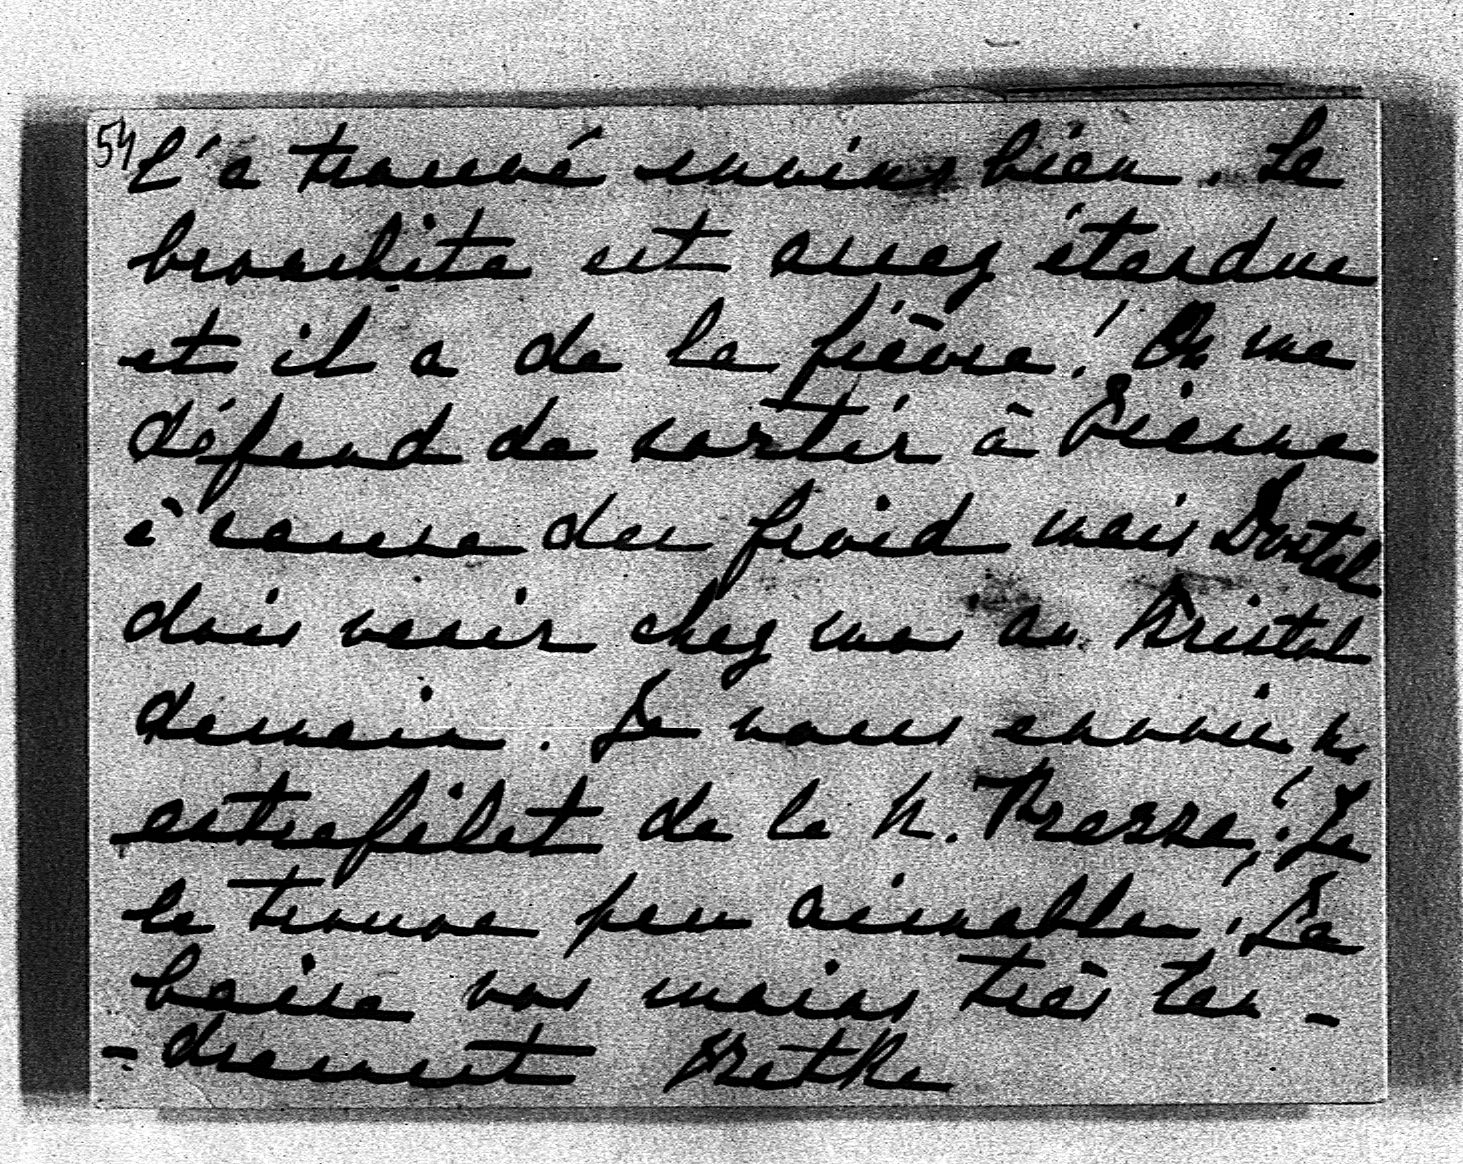 54
l'a trouvé moins bien. La
bronchite est assez étendue
et il a de la fièvre! On me
défend de sortir à Vienne
à cause du froid mais Dostal
dois venir chez moi au Bristol
demain. Je vous envoie un
entrefilet de la N. Presse! Je
le trouve peu aimable! Je
baise vos mains très ten-
-drement